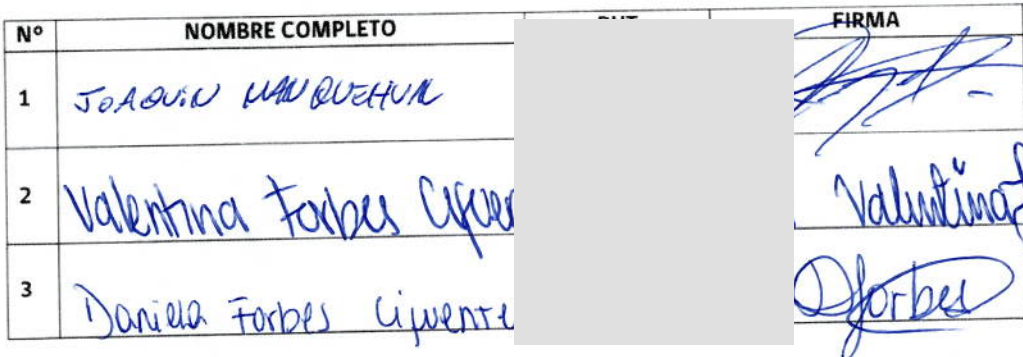 Nº NOMBRE COMPLETO FIRMA
1 JOAQUIN MANQUEHUAL
2 Valentina Forbes Cifuen Valentina
3 Daniela Forbes Cifuente Dforbes